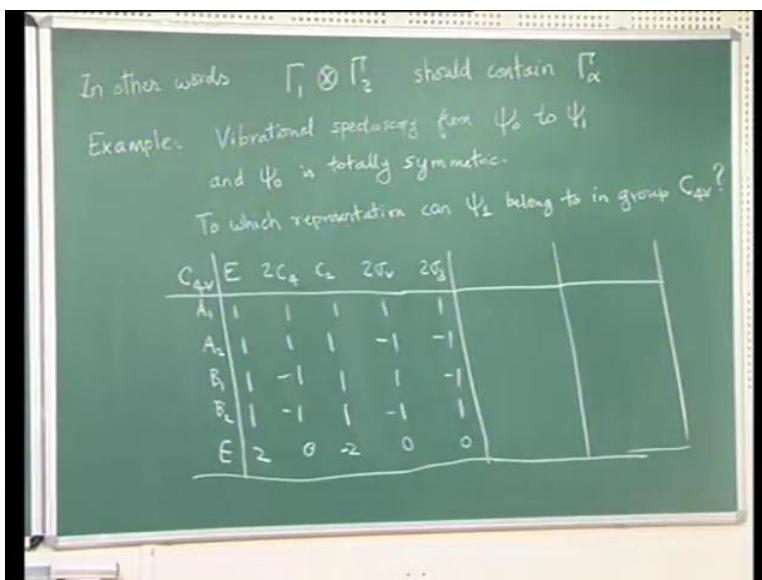 In other words Γ₁ ⊗ Γ₂ should contain Γα
Example: Vibrational spectroscopy from ψ₀ to ψ₁
and ψ₀ is totally symmetric.
To which representation can ψ₁ belong to in group C₄ᵥ?
C₄ᵥ E 2C₄ C₂ 2σᵥ 2σd
A₁ 1 1 1 1 1
A₂ 1 1 1 -1 -1
B₁ 1 -1 1 1 -1
B₂ 1 -1 1 -1 1
E 2 0 -2 0 0